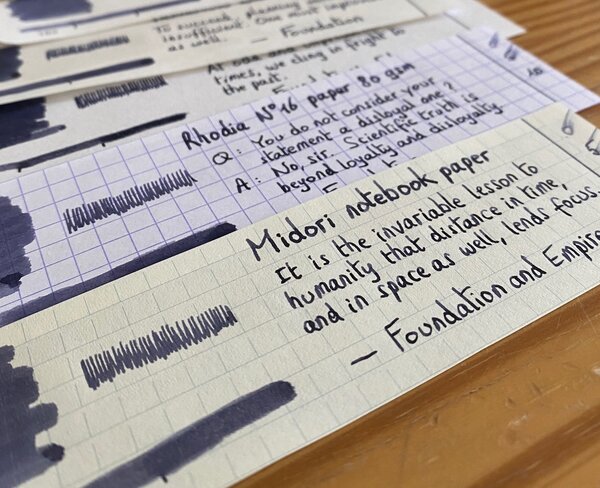 To succeed, planning
insufficient. One must improvise
as well. — Foundation
At
times, we cling in fright to
the past.
Rhodia N°16 paper 80 gsm
Q: You do not consider your
statement a disloyal one?
A: No, sir. Scientific truth is
beyond loyalty and disloyalty.
Midori notebook paper
It is the invariable lesson to
humanity that distance in time,
and in space as well, lends focus.
— Foundation and Empire